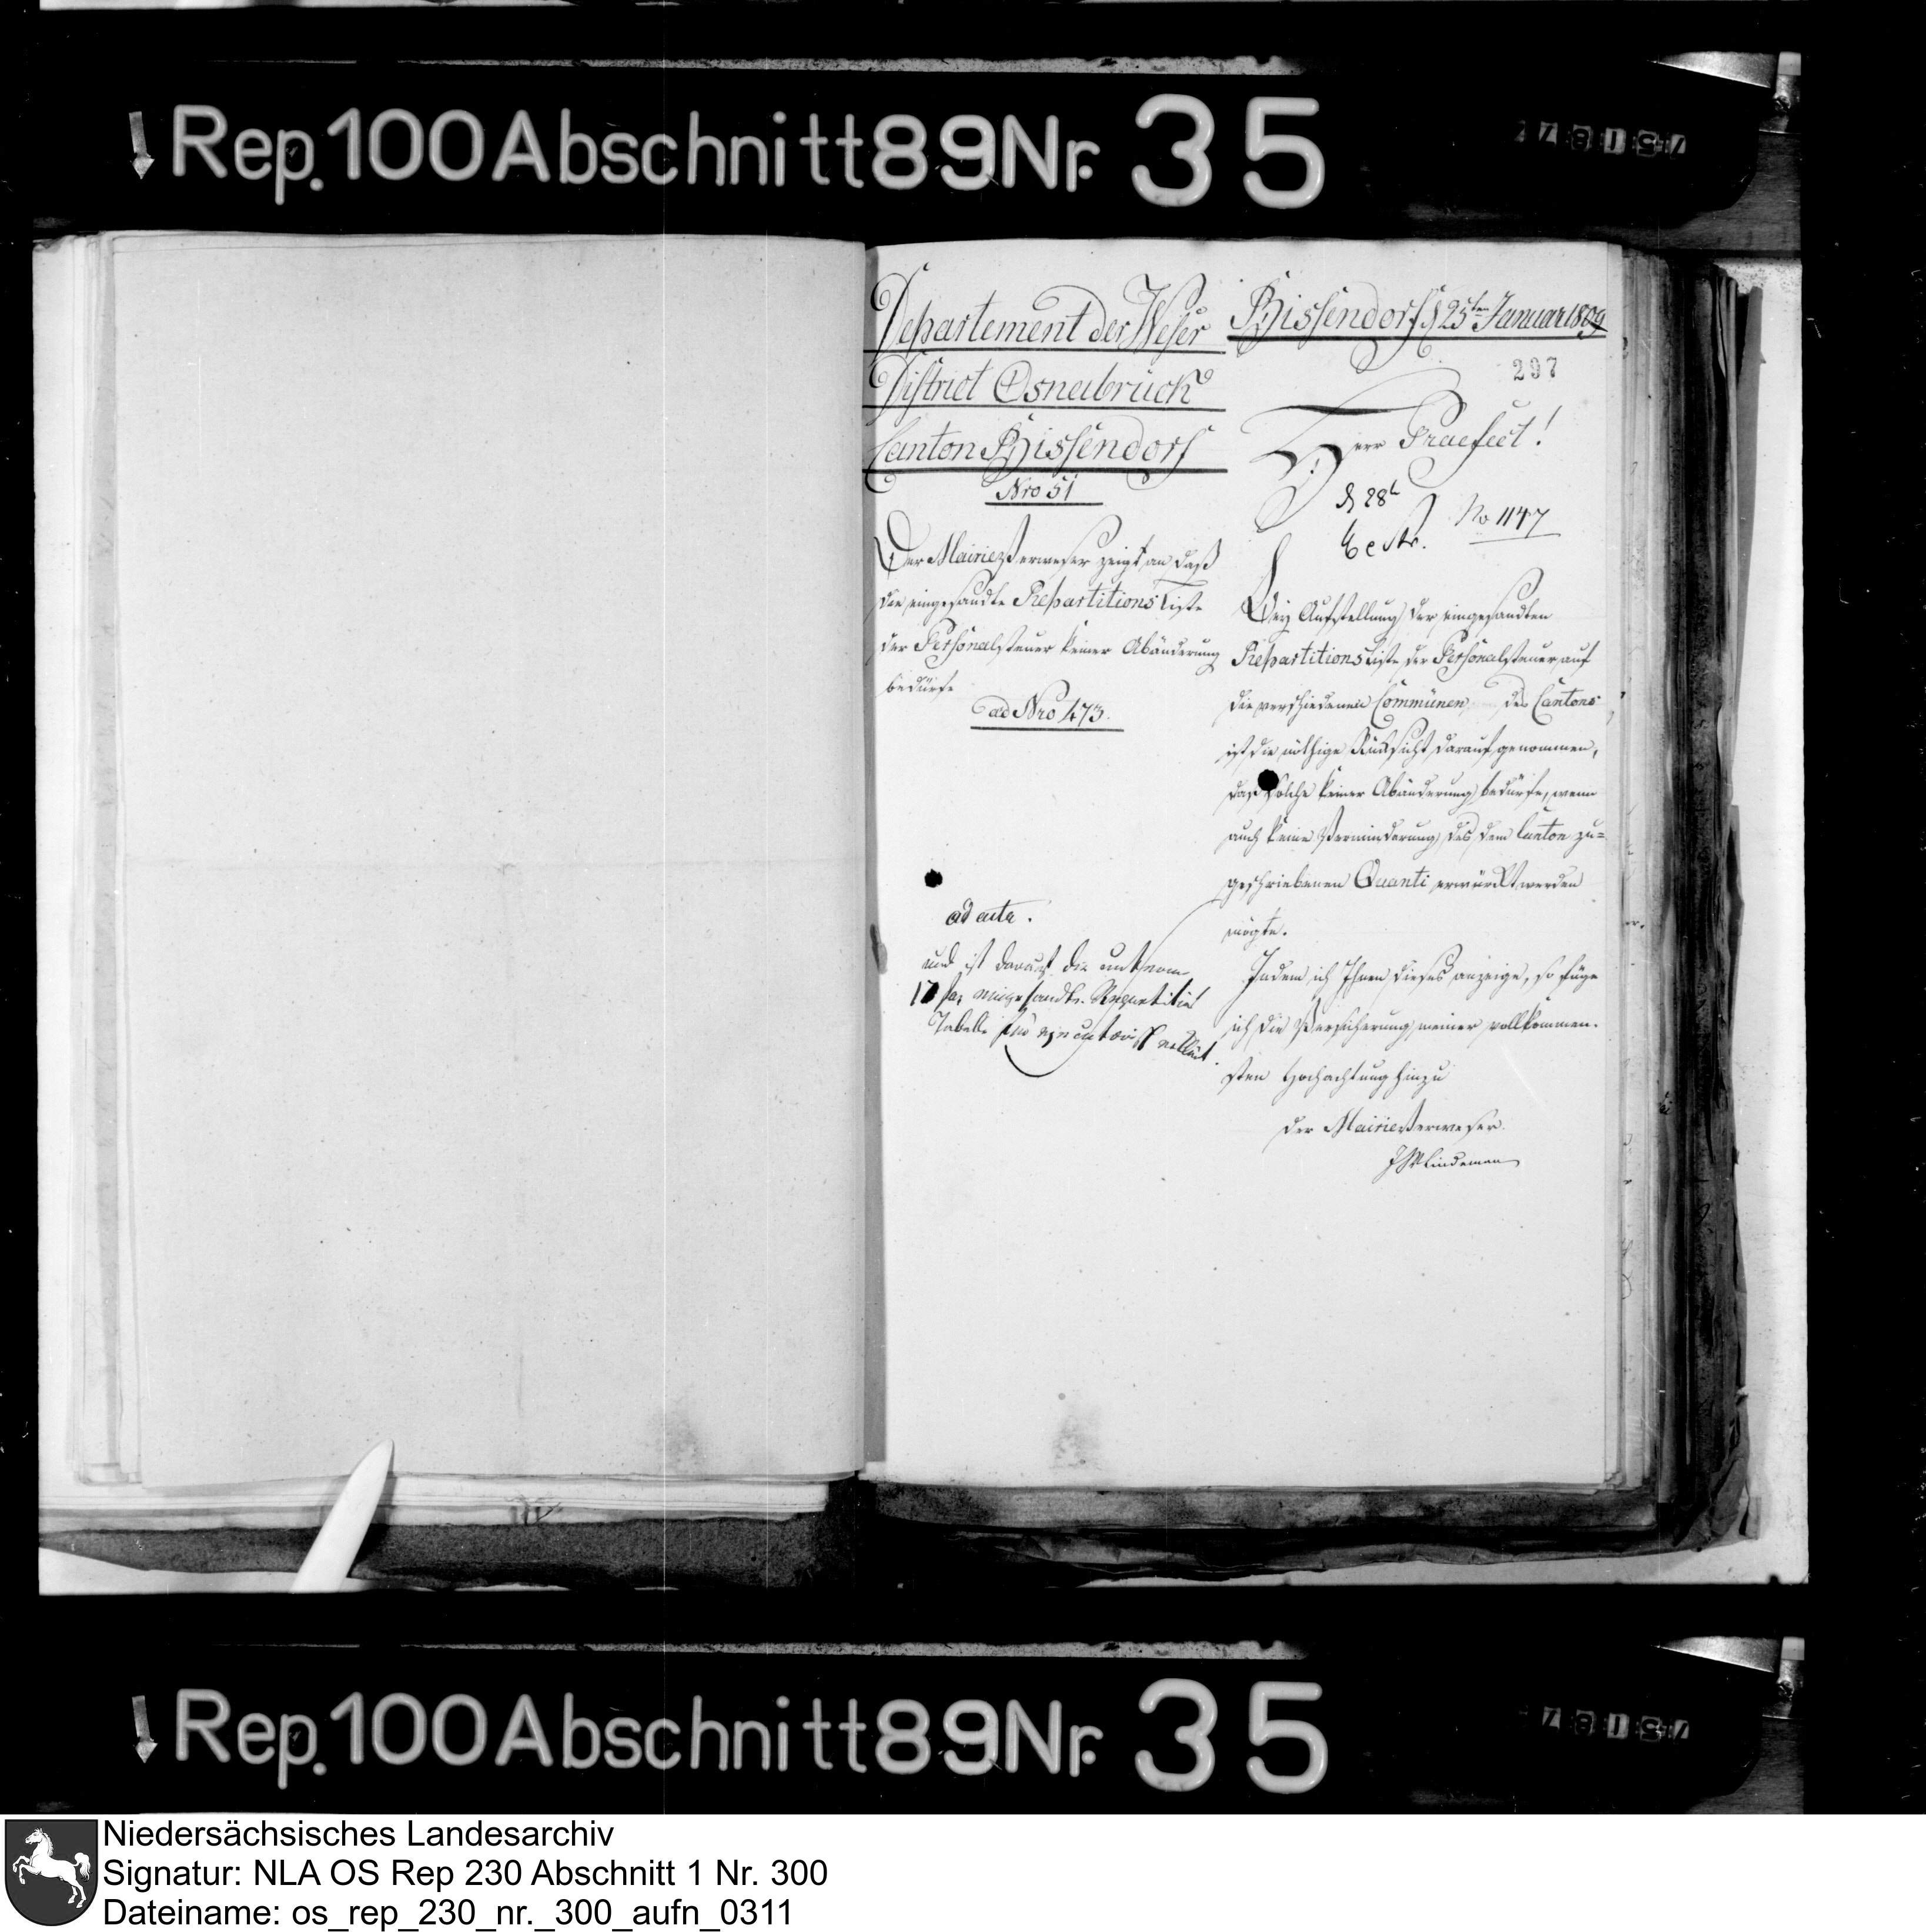 Rep. 100 Abschnitt 89 Nr. 35
Departement der Weser
District Osnabrück
Canton Bissendorf
Nro 51
Der Mairieverweser zeigt an daß
die eingesandte Repartitions Liste
der Personalsteuer keiner Abänderung
bedürfe
ad Nro 473.
ad acta.
und ist darauf die unterm
17 eingesandte Repartitions
Tabelle
Bissendorf d 25ten Januar 1809
297
Herr Praefect!
d 28t
No 1147
Bey Aufstellung der eingesandten
Repartitions Liste der Personalsteuer auf
die verschiedenen Communen des Cantons
ist die nöthige Rücksicht darauf genommen,
daß solche keiner Abänderung bedürfe, wenn
auch keine Verminderung des dem Canton zu=
geschriebenen Quanti erwürckt werden
mögte.
Indem ich Ihnen dieses anzeige, so füge
ich die Versicherung meiner vollkommen-
sten Hochachtung hinzu
der Mairieverweser.
Lindeman
Rep. 100 Abschnitt 89 Nr. 35
Niedersächsisches Landesarchiv
Signatur: NLA OS Rep 230 Abschnitt 1 Nr. 300
Dateiname: os_rep_230_nr._300_aufn_0311